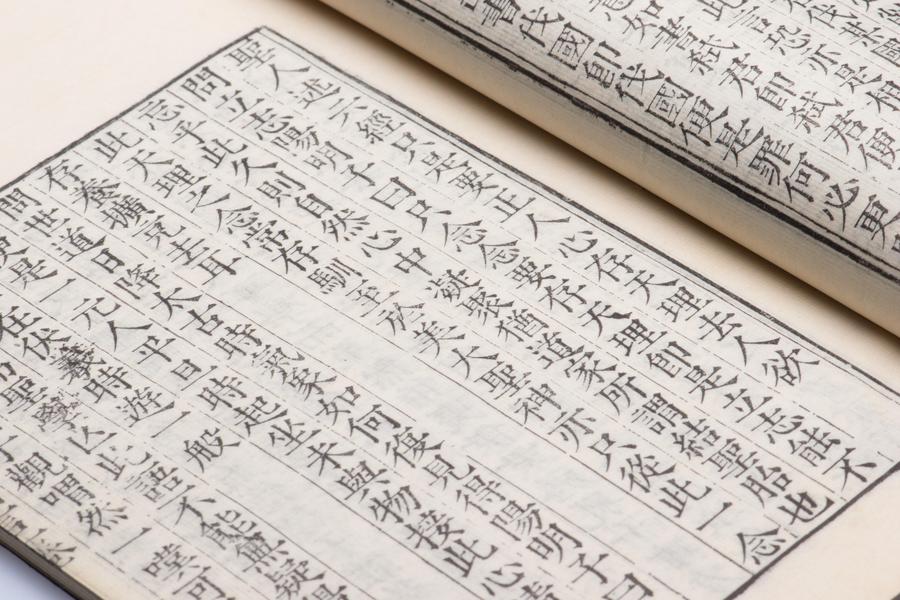 伐某國
此言恐亦是相
意如書弒君即弒君便
書伐國即伐國便是罪何必更
聖人述六經只是要正人心存天理去人欲
問立志陽明子曰只念念要存天理即是立志能不
忘乎此久則自然心中凝聚猶道家所謂結聖胎也
此天理之念常存馴至於美大聖神亦只從此一念
存養擴充去耳
問世道日降太古時氣象如何復見得陽明子曰
是一元人平旦時起坐未與物接此心清
在伏羲時遊一般
聖學亡此語不能無疑
觀喟然一嘆可